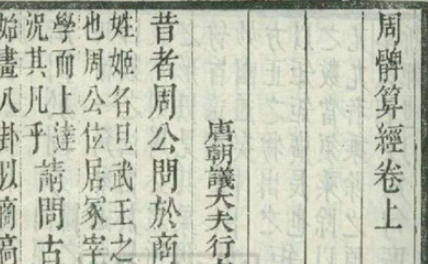 周髀算經卷上
唐朝議大夫行
昔者周公問於商
姓姬名旦武王之
也周公位居冢宰
學而上達
況其凡乎請問古
始畫八卦以商高